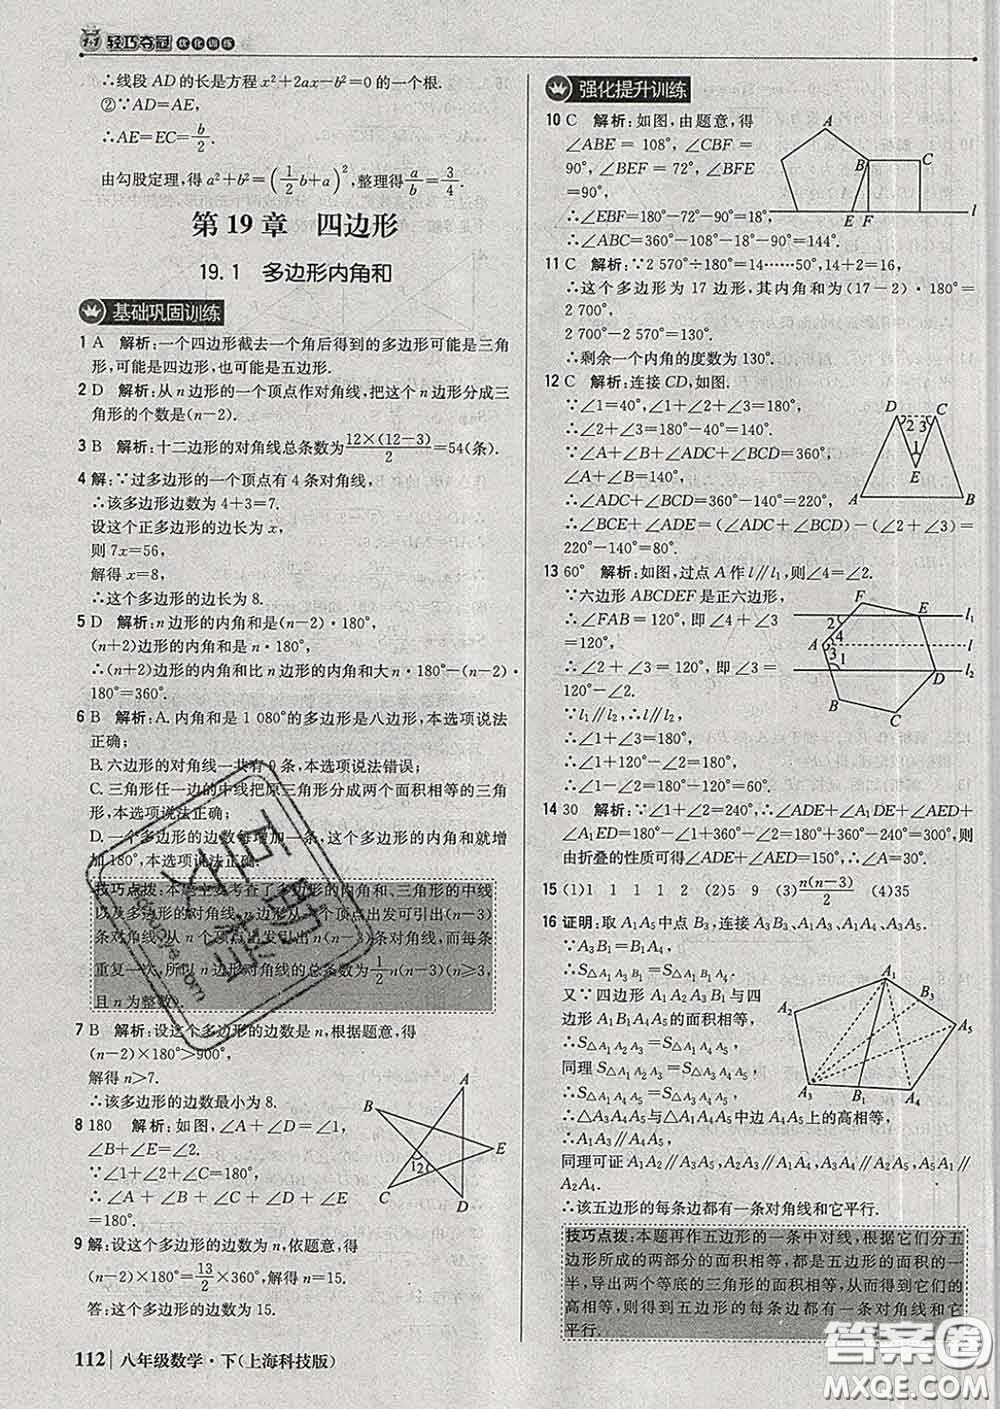 1+1 轻巧夺冠 优化训练
∴线段 AD 的长是方程 x²+2ax-b²=0 的一个根.
②∵AD=AE,
∴AE=EC=b/2.
由勾股定理,得 a²+b²=(1/2 b+a)²,整理得 a/b=3/4.
第 19 章 四边形
19.1 多边形内角和
基础巩固训练
1 A 解析:一个四边形截去一个角后得到的多边形可能是三角
形,可能是四边形,也可能是五边形.
2 D 解析:从 n 边形的一个顶点作对角线,把这个 n 边形分成三
角形的个数是(n-2).
3 B 解析:十二边形的对角线总条数为 12×(12-3)/2=54(条).
4 解:∵过多边形的一个顶点有 4 条对角线,
∴该多边形边数为 4+3=7.
设这个正多边形的边长为 x,
则 7x=56,
解得 x=8,
∴这个多边形的边长为 8.
5 D 解析:n 边形的内角和是(n-2)·180°,
(n+2)边形的内角和是 n·180°,
∴(n+2)边形的内角和比 n 边形的内角和大 n·180°-(n-2)·
180°=360°.
6 B 解析:A. 内角和是 1 080°的多边形是八边形,本选项说法
正确;
B. 六边形的对角线一共有 9 条,本选项说法错误;
C. 三角形任一边的中线把原三角形分成两个面积相等的三角
形,本选项说法正确;
D. 一个多边形的边数每增加一条,这个多边形的内角和就增
加 180°,本选项说法正确.
技巧点拨:本题主要考查了多边形的内角和、三角形的中线
以及多边形的对角线,n 边形从一个顶点出发可引出(n-3)
条对角线.从 n 个顶点出发引出(n-3)条对角线,而每条
重复一次,所以 n 边形对角线的总条数为 1/2 n(n-3)(n≥3,
且 n 为整数).
7 B 解析:设这个多边形的边数是 n,根据题意,得
(n-2)×180°>900°,
解得 n>7.
∴该多边形的边数最小为 8.
8 180 解析:如图,∠A+∠D=∠1,
∠B+∠E=∠2.
∵∠1+∠2+∠C=180°,
∴∠A+∠B+∠C+∠D+∠E
=180°.
A
B
E
1 2
C
D
9 解:设这个多边形的边数为 n,依题意,得
(n-2)×180°=13/2×360°,解得 n=15.
答:这个多边形的边数为 15.
112 八年级数学·下(上海科技版)
强化提升训练
10 C 解析:如图,由题意,得
∠ABE = 108°,∠CBF =
90°,∠BEF = 72°,∠BFE
=90°,
∴∠EBF=180°-72°-90°=18°,
∴∠ABC=360°-108°-18°-90°=144°.
A
B C
E F l
11 C 解析:∵2 570°÷180°=14……50°,14+2=16,
∴这个多边形为 17 边形,其内角和为(17-2)·180°=
2 700°,
2 700°-2 570°=130°.
∴剩余一个内角的度数为 130°.
12 C 解析:连接 CD,如图.
∵∠1=40°,∠1+∠2+∠3=180°,
∴∠2+∠3=180°-40°=140°.
∵∠A+∠B+∠ADC+∠BCD=360°,
∠A+∠B=140°,
∴∠ADC+∠BCD=360°-140°=220°,
∴∠BCE+∠ADE=(∠ADC+∠BCD)-(∠2+∠3)=
220°-140°=80°.
D C
2 3
1
E
A B
13 60° 解析:如图,过点 A 作 l∥l₁,则∠4=∠2.
∵六边形 ABCDEF 是正六边形,
∴∠FAB=120°,即∠4+∠3
=120°,
∴∠3+∠2=120°,即∠3=
120°-∠2.
∵l₁∥l₂,∴l∥l₂,
∴∠1+∠3=180°,
∴∠1+120°-∠2=180°,
∴∠1-∠2=180°-120°=60°.
F E l₁
2
A 4 l
3
1 D l₂
B C
14 30 解析:∵∠1+∠2=240°,∴∠ADE+∠A₁DE+∠AED+
∠A₁ED=180°-∠1+180°-∠2=180°+360°-240°=300°,则
由折叠的性质可得∠ADE+∠AED=150°,∴∠A=30°.
15 (1)1 1 1 2 (2)5 9 (3)n(n-3)/2 (4)35
16 证明:取 A₁A₅ 中点 B₃,连接 A₃B₃、A₁A₃、A₁A₄、A₃A₅.
∵A₃B₁=B₁A₄,
∴S△A₁A₃B₁=S△A₁B₁A₄.
又∵四边形 A₁A₂A₃B₁ 与四
边形 A₁B₁A₄A₅ 的面积相等,
∴S△A₁A₂A₃=S△A₁A₄A₅.
同理 S△A₁A₂A₃=S△A₃A₄A₅,
∴S△A₁A₄A₅=S△A₃A₄A₅,
∴△A₃A₄A₅与△A₁A₄A₅中边 A₄A₅上的高相等,
∴A₁A₃∥A₄A₅.
同理可证 A₁A₂∥A₃A₅,A₂A₃∥A₁A₄,A₃A₄∥A₂A₅,A₅A₁∥
A₂A₄.
∴该五边形的每条边都有一条对角线和它平行.
A₁
A₂ B₃
A₅
A₃ B₁ A₄
技巧点拨:本题再作五边形的一条中对线,根据它们分五
边形所成的两部分的面积相等,都是五边形的面积的一
半,导出两个等底的三角形的面积相等,从而得到它们的
高相等,则得到五边形的每条边都有一条对角线和它平
行.
答案圈
MXQE.COM